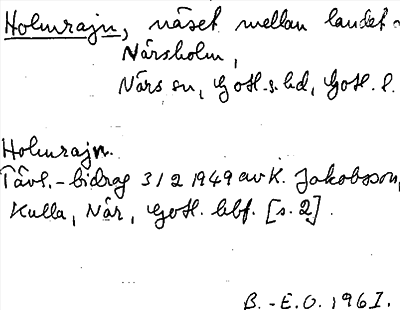 Holmrajn, näset mellan landet o
Närsholm,
Närs sn, Gotl. s. hd, Gotl. l.
Holmrajn.
Tävl.-bidrag 3/2 1949 av K. Jakobsson,
Kulla, När, Gotl. hbf. [s. 2].
B.-E.O. 1961.